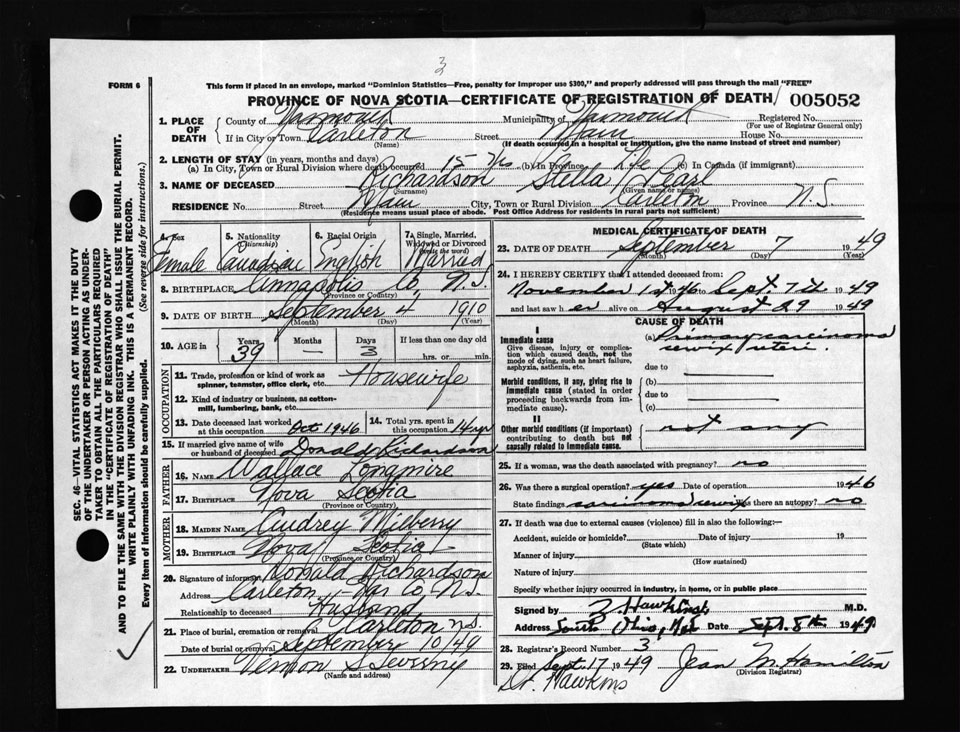 3
FORM 6
This form if placed in an envelope, marked "Dominion Statistics—Free, penalty for improper use $300," and properly addressed will pass through the mail "FREE"
PROVINCE OF NOVA SCOTIA—CERTIFICATE OF REGISTRATION OF DEATH 005052
1. PLACE OF DEATH
County of Yarmouth Municipality of Yarmouth Registered No.
(For use of Registrar General only)
If in City or Town Carleton Street Main House No.
(Name) (If death occurred in a hospital or institution, give the name instead of street and number)
2. LENGTH OF STAY (in years, months and days)
(a) In City, Town or Rural Division where death occurred 15 yrs (b) In Province Life (c) In Canada (if immigrant)
3. NAME OF DECEASED Richardson Stella Pearl
(Surname) (Given name or names)
RESIDENCE No. Street Main City, Town or Rural Division Carleton Province N.S.
(Residence means usual place of abode. Post Office Address for residents in rural parts not sufficient)
4. Sex Female
5. Nationality (Citizenship) Canadian
6. Racial Origin English
7. Single, Married, Widowed or Divorced (write the word) Married
8. BIRTHPLACE Annapolis Co. N.S.
(Province or Country)
9. DATE OF BIRTH September 4 1910
(Month) (Day) (Year)
10. AGE in Years 39 Months — Days 3 If less than one day old
hrs. or min.
OCCUPATION
11. Trade, profession or kind of work as spinner, teamster, office clerk, etc. Housewife
12. Kind of industry or business, as cotton-mill, lumbering, bank, etc.
13. Date deceased last worked at this occupation Oct 1946
14. Total yrs. spent in this occupation 14 yrs
15. If married give name of wife or husband of deceased Donald Richardson
FATHER
16. NAME Wallace Longmire
17. BIRTHPLACE Nova Scotia
(Province or Country)
MOTHER
18. MAIDEN NAME Audrey Milberry
19. BIRTHPLACE Nova Scotia
(Province or Country)
20. Signature of informant Donald Richardson
Address Carleton Yar Co. N.S.
Relationship to deceased Husband
21. Place of burial, cremation or removal Carleton N.S.
Date of burial or removal September 10/49
22. UNDERTAKER Vernon
(Name and address)
MEDICAL CERTIFICATE OF DEATH
23. DATE OF DEATH September 7 1949
(Month) (Day) (Year)
24. I HEREBY CERTIFY that I attended deceased from:
November 1st 1946 to Sept. 7th 1949
and last saw her alive on August 29 1949
CAUSE OF DEATH
I
Immediate cause
Give disease, injury or complication which caused death, not the mode of dying, such as heart failure, asphyxia, asthenia, etc.
(a) Primary carcinoma
cervix uteri
due to
Morbid conditions, if any, giving rise to immediate cause (stated in order proceeding backwards from immediate cause).
(b)
due to
(c)
II
Other morbid conditions (if important) contributing to death but not causally related to immediate cause.
not any
25. If a woman, was the death associated with pregnancy? no
26. Was there a surgical operation? yes Date of operation 1946
State findings carcinoma cervix Was there an autopsy? no
27. If death was due to external causes (violence) fill in also the following:—
Accident, suicide or homicide? Date of injury 19
(State which)
Manner of injury
(How sustained)
Nature of injury
Specify whether injury occurred in industry, in home, or in public place
Signed by Z. Hawkins M.D.
Address South Ohio, Date Sept. 8th 1949
28. Registrar's Record Number 3
29. Filed Sept 17 1949 Jean M. Hamilton
(Division Registrar)
Dr. Hawkins
SEC. 46—VITAL STATISTICS ACT MAKES IT THE DUTY
OF THE UNDERTAKER OR PERSON ACTING AS UNDER-
TAKER TO OBTAIN ALL THE PARTICULARS REQUIRED
IN THE "CERTIFICATE OF REGISTRATION OF DEATH"
AND TO FILE THE SAME WITH THE DIVISION REGISTRAR WHO SHALL ISSUE THE BURIAL PERMIT.
WRITE PLAINLY WITH UNFADING INK. THIS IS A PERMANENT RECORD.
Every item of information should be carefully supplied. (See reverse side for instructions.)